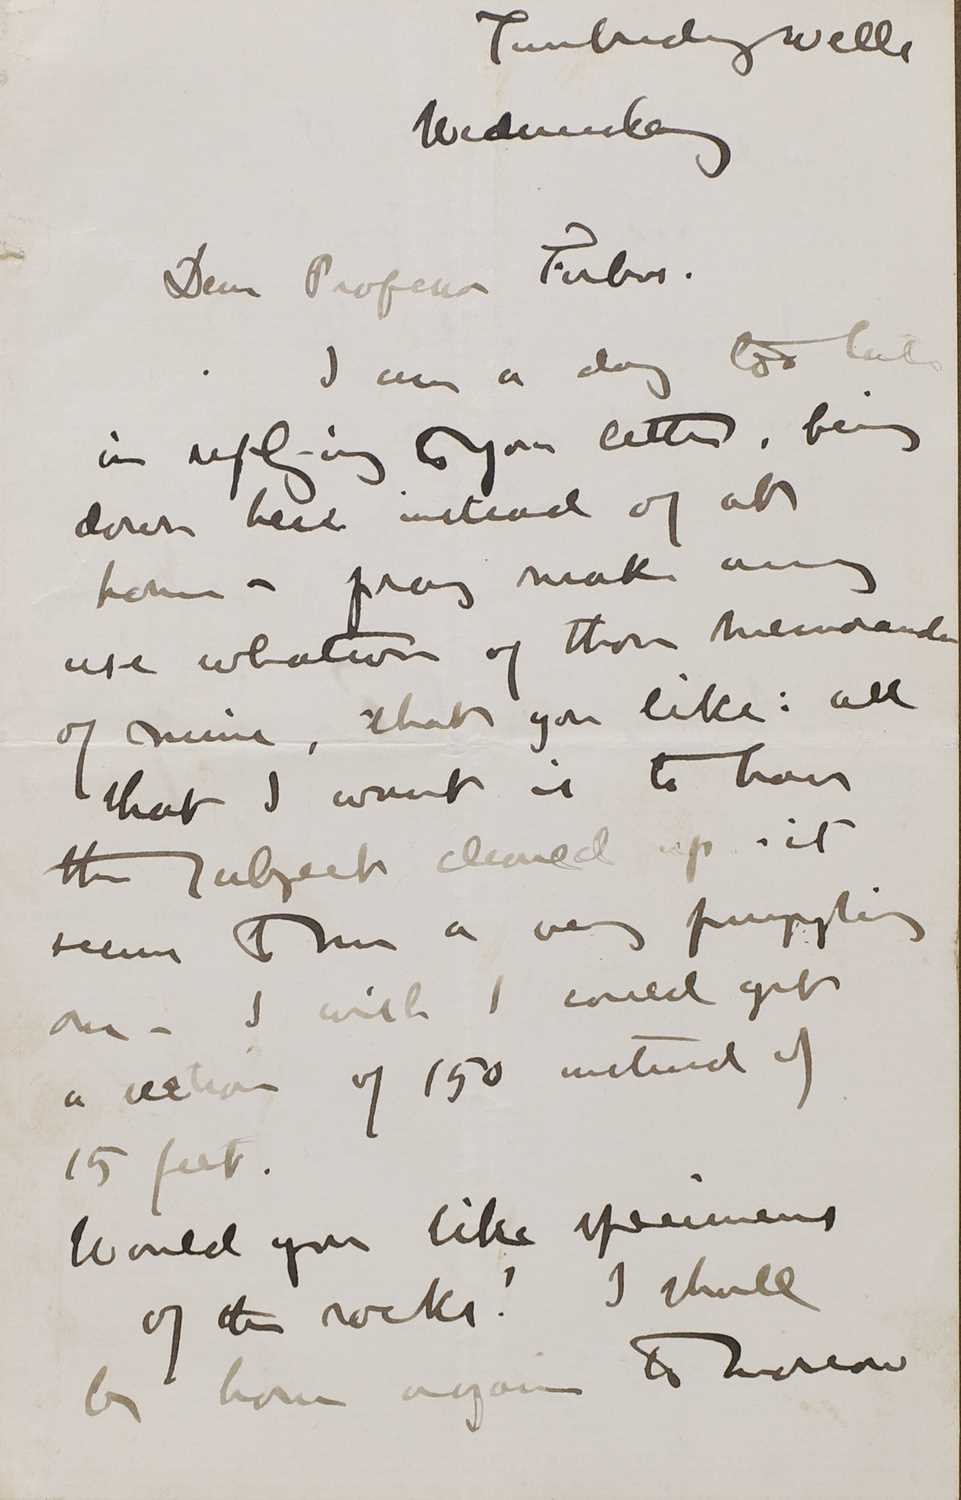 Tunbridge Wells
Wednesday
Dear Professor Forbes.
I am a day too late
in replying to your letter, being
down here instead of at
home - pray make any
use whatever of those memoranda
of mine, that you like: all
that I want is to have
the subject cleared up. it
seems to me a very puzzling
one - I wish I could get
a section of 150 instead of
15 feet.
Would you like specimens
of the rocks? I shall
be home again to morrow